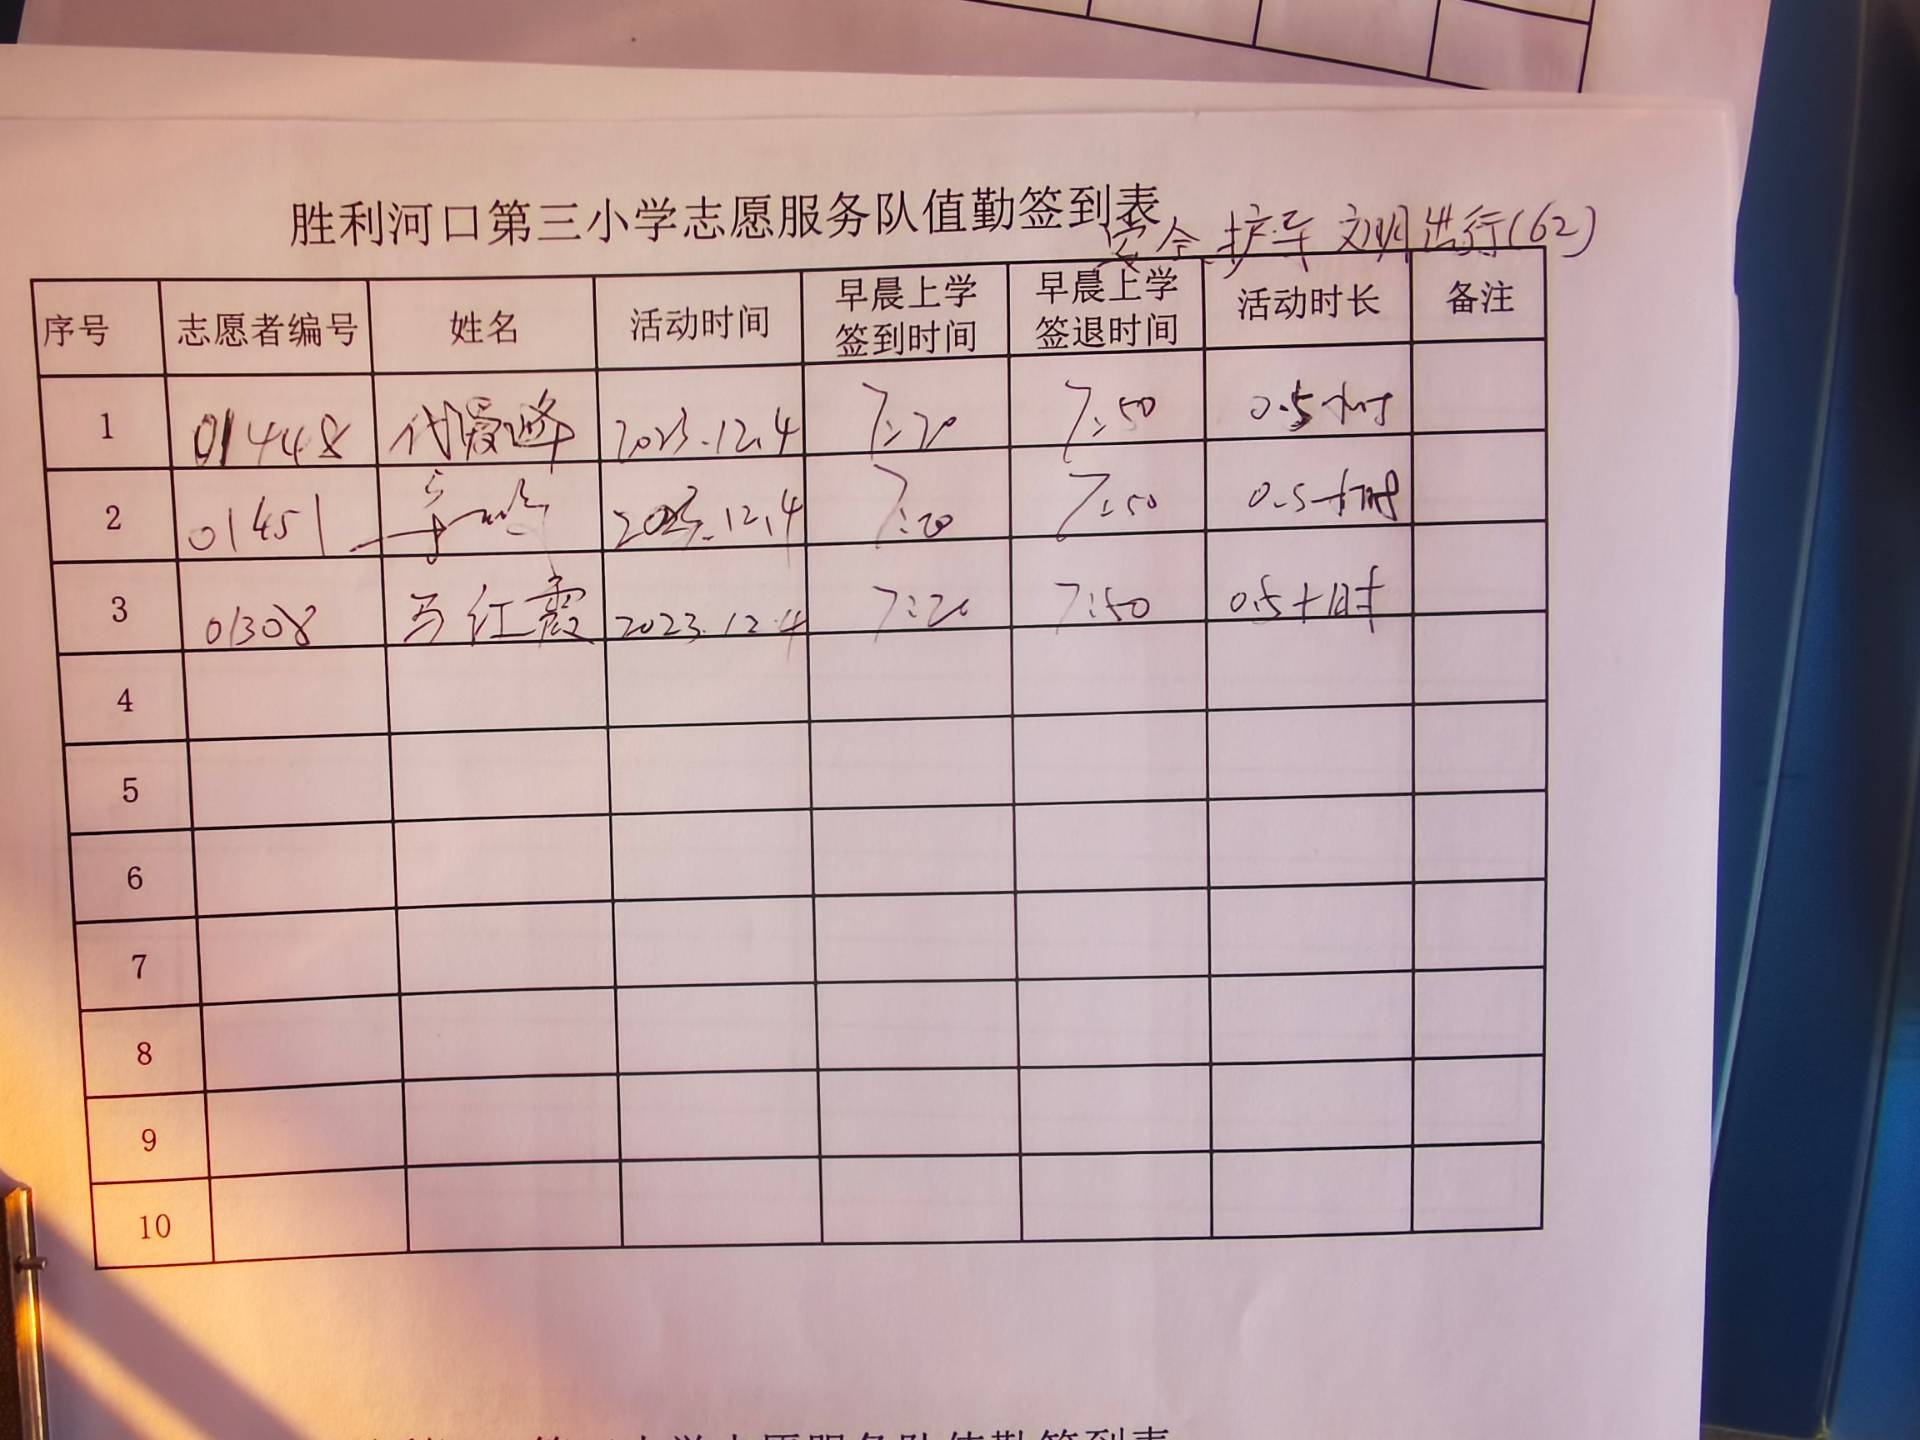 胜利河口第三小学志愿服务队值勤签到表
安全护导 文明出行(62)
序号 志愿者编号 姓名 活动时间 早晨上学签到时间 早晨上学签退时间 活动时长 备注
1 01448 代爱峰 2023.12.4 7:20 7:50 0.5小时
2 01451 2023.12.4 7:20 7:50 0.5小时
3 01308 马红霞 2023.12.4 7:20 7:50 0.5小时
4
5
6
7
8
9
10